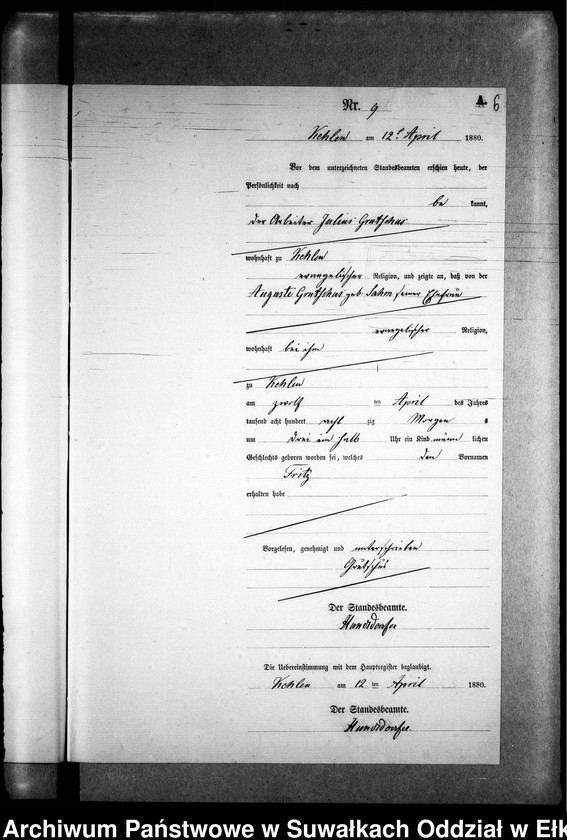 A. 6
Nr. 9
Kehlen am 12t April 1880.
Vor dem unterzeichneten Standesbeamten erschien heute, der
Persönlichkeit nach
be kannt,
der Arbeiter Julius
wohnhaft zu Kehlen
evangelischer Religion, und zeigte an, daß von der
Auguste geb. seiner Ehefrau
evangelischer Religion,
wohnhaft bei ihm
zu Kehlen
am zwölf ten April des Jahres
tausend acht hundert acht zig Morgen s
um drei ein halb Uhr ein Kind männ lichen
Geschlechts geboren worden sei, welches den Vornamen
Fritz
erhalten habe
Vorgelesen, genehmigt und unterschrieben
Der Standesbeamte.
Die Uebereinstimmung mit dem Hauptregister beglaubigt.
Kehlen am 12 ten April 1880.
Der Standesbeamte.
Archiwum Państwowe w Suwałkach Oddział w Ełk